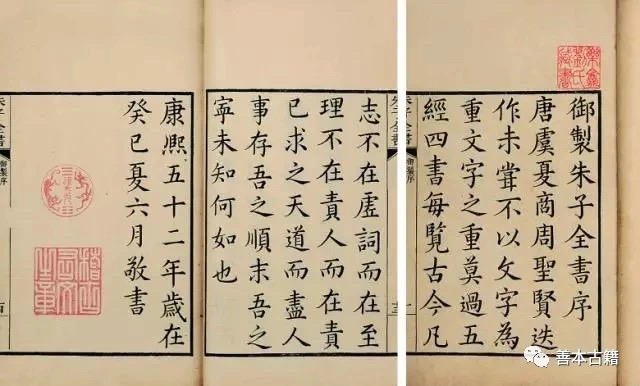 御製朱子全書序
唐虞夏商周聖賢迭
作未嘗不以文字為
重文字之重莫過五
經四書每覽古今凡
朱子全書
御製序
志不在虛詞而在至
理不在責人而在責
已求之天道而盡人
事存吾之順末吾之
寧未知何如也
康熙五十二年歲在
癸巳夏六月敬書
朱子全書
御製序
稽古右文之章
善本古籍